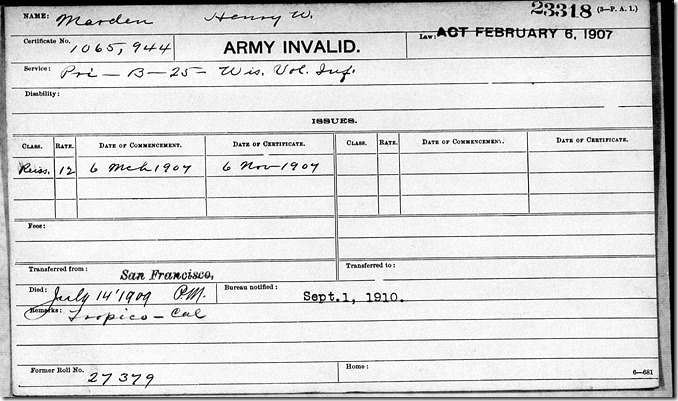 NAME: Marden Henry W. 23318 (3—P. A. 1.)
Certificate No. 1065,944 ARMY INVALID. Law: ACT FEBRUARY 6, 1907
Service: Pri — B — 25 — Wis. Vol. Inf.
Disability:
ISSUES.
CLASS. RATE. DATE OF COMMENCEMENT. DATE OF CERTIFICATE. CLASS. RATE. DATE OF COMMENCEMENT. DATE OF CERTIFICATE.
Reiss. 12 6 Mch 1907 6 Nov 1907
Fees:
Transferred from: San Francisco, Transferred to:
Died: July 14 '1909 P.M. Bureau notified: Sept. 1, 1910.
Remarks: Tropico — Cal
Former Roll No. 27379 Home: 6—681